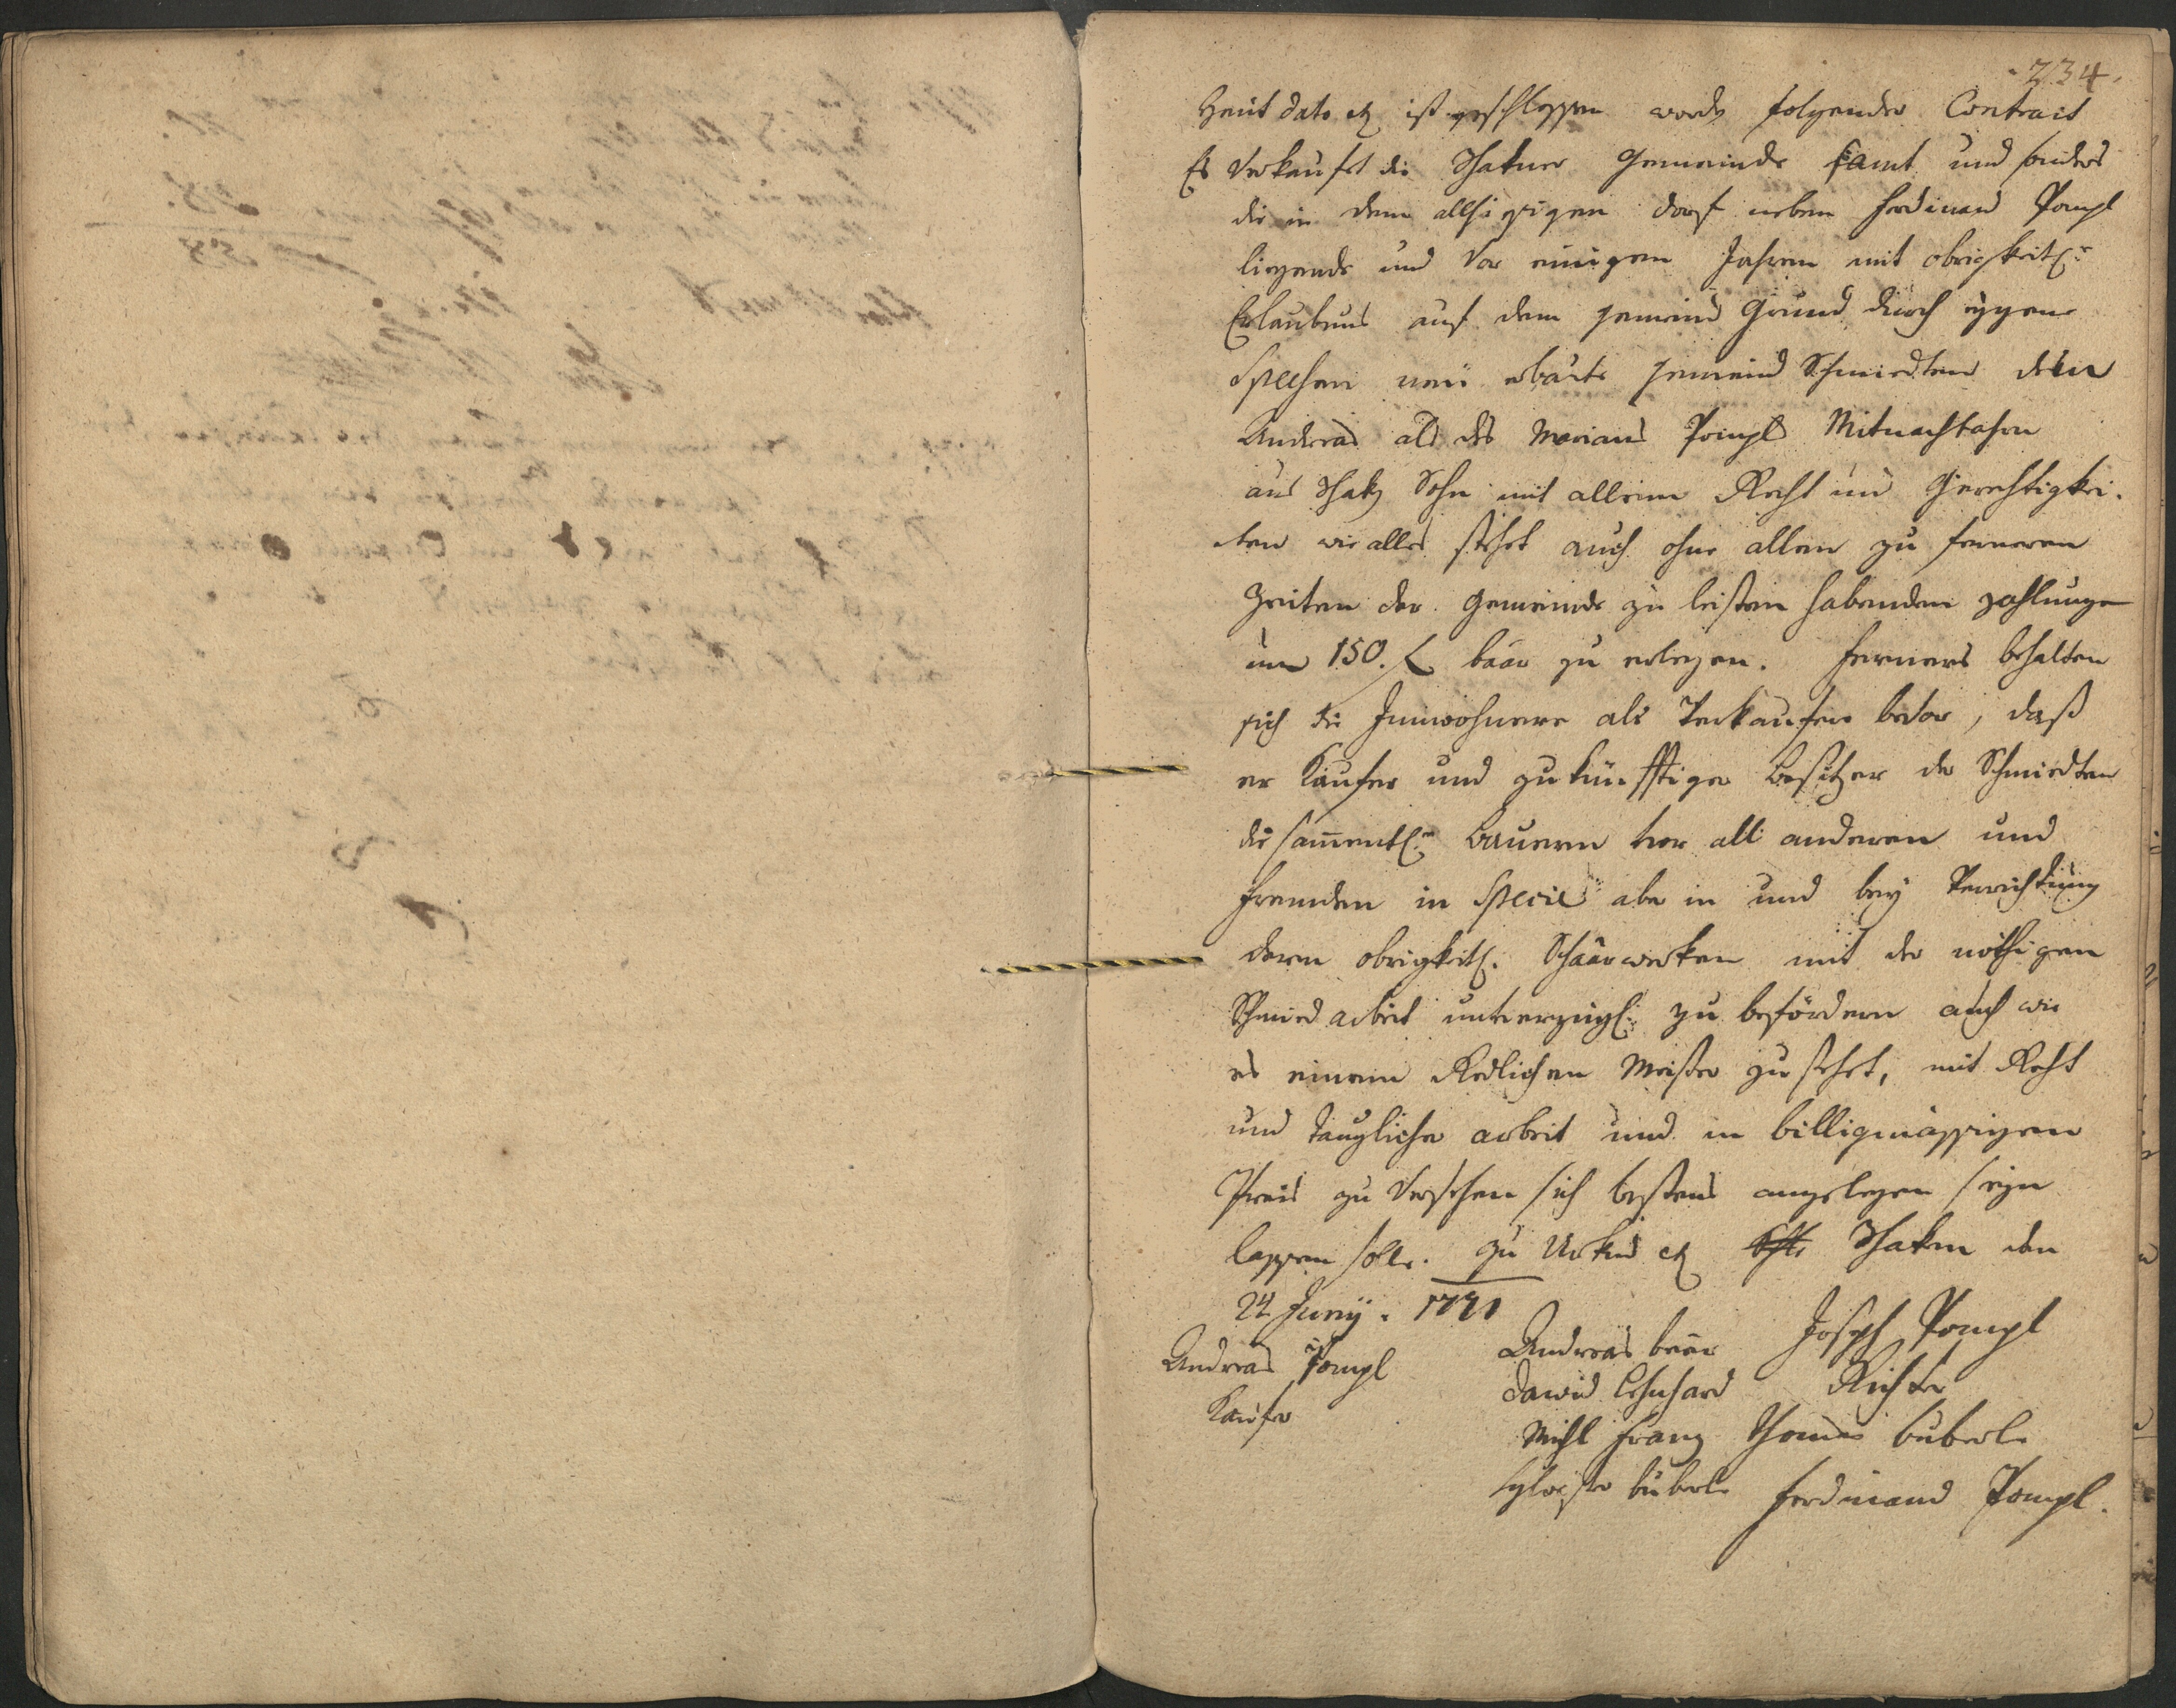 234.
Heut dato etz ist geschlossen worden folgender Contract
Es Verkauft die gemeinde samt und sonders
die in dem allhiesigen dorf neben Ferdinand Pompl
liegende und Vor einigen Jahren mit obrigkeitl:r
Erlaubnus auf dem gemeind Grund durch eigene
Spesen neü erbaute gemeind Schmidten dem
Andreas als des Marians Pompls Mitnachbahrn
aus Sohn mit alleine Recht und Gerechtigkei-
ten wie alles stehet auch ohne allen zu ferneren
Zeiten der gemeinde zu leisten habenden zahlungen
um 150. f baar zu erlegen. Ferners behalten
sich die Innwohnere als Verkaufere bevor, daß
er Kaufer und zukünfftiger Besitzer der Schmidten
die sam̄entl:n Bauern vor all anderen und
fremden in Specie aber in und bey Verrichtung
deren obrigkeitl. Schaarwerken mit der nöthigen
Schmied arbeit unverzügl: zu befördern auch wie
es einem Redlichen Meister zu stehet, mit Recht
und tauglicher arbeit und in billigmässigen
Preis zu Versehen sich bestens angelegen seyn
lassen solle. Zu Urkund etz den
24 Juny. 1791
Andreas Pompl
Kaufer
Andreas beer
Dawid Lehnhard
Michl Franz
Sylvester büberl
Joseph Pompl
Richter
Thomas büberl
Ferdinand Pompl.